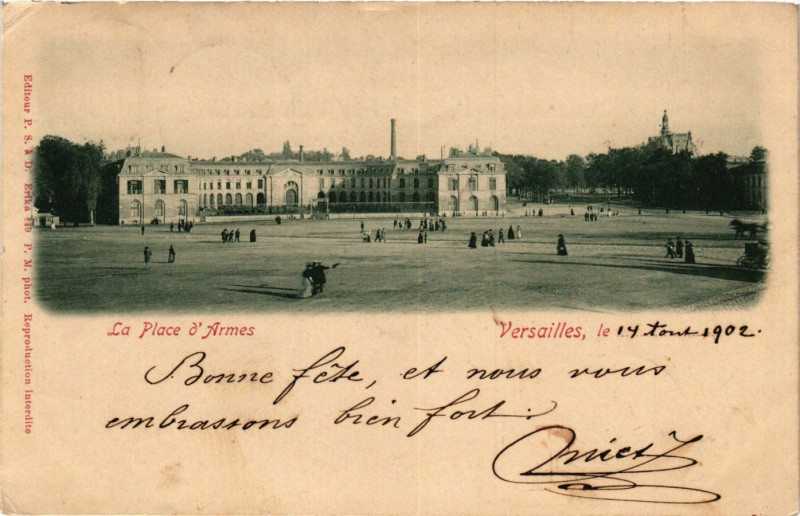 Editeur P. S. à D. Erika 249 P. M. phot. Reproduction interdite
La Place d'Armes
Versailles, le 14 tout 1902.
Bonne fête, et nous vous
embrassons bien fort.